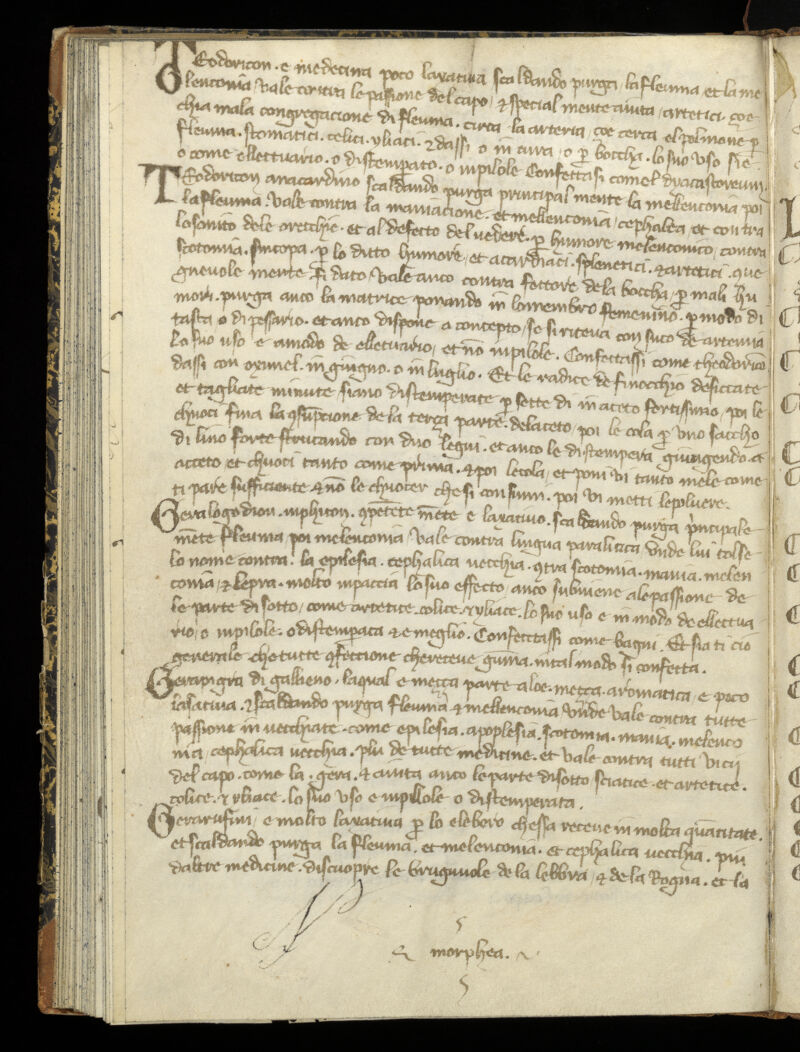 TEodoricon. e medecina poco laxativa scaldando purga, la fleuma et la me
lenconia, vale contra le passione del capo, et special mente aiuta, artetici. çoe
chia mala congregacione di fleuma. circa la arteria, çoe cerca el polmone p
fleuma. stomatici. colici. yliaci. et dassi o in aura, o p boccha. lo suo uso sie
o come ellectuario. o distemperato. o inpilole Confettasi come l dyacastoreum.
TEodoricon anacardino scaldando purga principal mente la mellenconia poi
la fleuma. vale contra la maniacione. et mellenconia, cephalea, et contra
lo sonito dele orecchie. et al defecto del uedere. p humore melenconico, contra
scotomia. sincopa. p lo ditto humore, et acardiaci. splenetici. et artetici. que
gneuole mente si dato, vale anco contra fettore de la boccha, p mali hu
mori. purga anco la matrice ponando in lo membro femenino. p modo di
tasta o di pessario. et anco dispone a concepto, se si riceva con suco de artemia
Lo suo uso e amodo de ellectuario, et no inpilole. Confettassi come theodorico
dassi con oximel. in giugno. o in luglio. Et le radice de finocchio desiccate
et tagliate minute siano distemperate p sette di in aceto fortissimo, poi le
chuoci fina la gsupcione de la terça parte. delaceto, poi le cola p uno saccho
di lino forte strucando con duo legni. et anco le distempera giungendo. a
acceto et chuoci tanto come prima. et poi le cola, et poni vi tanto mele come
ti pare sufficiente et no le chuocer che si consumi. poi vi metti le poluere.
Gera logodion. inphiton. gpetete mete e laxativo. scaldando purga principale
mete fleuma poi melenconia, vale contra lingua paralitica unde lui tolse
lo nome contra. la epilesia. cephalica uecchia. gtra scotomia. mania. melen
conia, et lepra. molto inpaccia lo suo effecto, anco subuiene ale passione de
le parte di sotto, come artetice. colice. et yliace. lo suo uso e in modo de ellectua
rio, o inpilole. o distemperata et e meglio. Confecttassi come bagni. Et sia ti cio
generale che tutte gfeccione che receue guma. in tal modo si confetta.
Gerapigra di gallieno. laqual e meçça parte aloe. meçça. aromatica, e poco
lasatiua. et scaldando purga fleuma et mellenconia unde vale contra tutte
passione in uecchiate. come epilesia. apoplesia. scotomia. mania. melenco
nia, cephalica uecchia. piu de tutte medicine. et vale contra tutti vicii
del capo. come la. gera. et aiuta anco le parte disotto sciatice. et artetice.
colice. et yliace. lo suo vso e inpillole o distemperata.
Gerarufini, e molto laxativa p lo elebero chessa receue in molta quantitate.
et scaldando purga la fleuma. et melenconia. et cephalica uecchia. piu
daltre medicine. discuopre le brugnuole de la lebbra, et de la Rogna. et la
morphea.